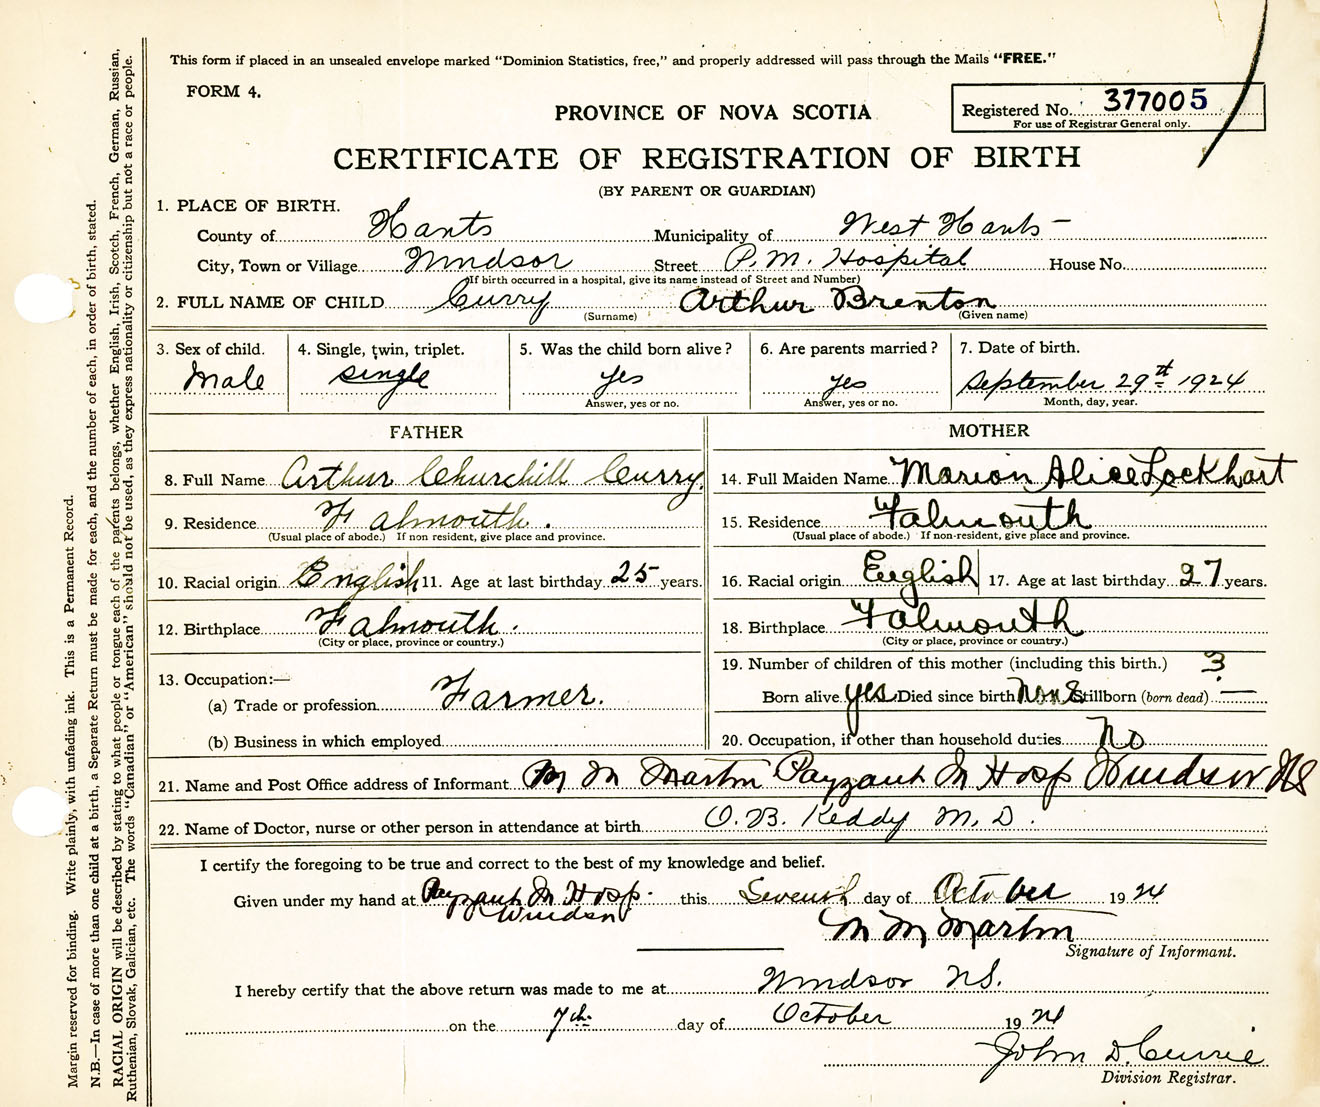 This form if placed in an unsealed envelope marked "Dominion Statistics, free," and properly addressed will pass through the Mails "FREE."
FORM 4.
PROVINCE OF NOVA SCOTIA
Registered No. 377005
For use of Registrar General only.
CERTIFICATE OF REGISTRATION OF BIRTH
(BY PARENT OR GUARDIAN)
1. PLACE OF BIRTH.
County of Hants Municipality of West Hants
City, Town or Village Windsor Street P.M. Hospital House No.
(If birth occurred in a hospital, give its name instead of Street and Number)
2. FULL NAME OF CHILD Curry Arthur Brenton
(Surname) (Given name)
3. Sex of child. 4. Single, twin, triplet. 5. Was the child born alive? 6. Are parents married? 7. Date of birth.
Male single yes yes September 29th 1924
Answer, yes or no. Answer, yes or no. Month, day, year.
FATHER MOTHER
8. Full Name Arthur Churchill Curry. 14. Full Maiden Name Marion Alice Lockhart
9. Residence Falmouth. 15. Residence Falmouth
(Usual place of abode.) If non resident, give place and province. (Usual place of abode.) If non-resident, give place and province.
10. Racial origin English 11. Age at last birthday 25 years. 16. Racial origin English 17. Age at last birthday 27 years.
12. Birthplace Falmouth. 18. Birthplace Falmouth
(City or place, province or country.) (City or place, province or country.)
13. Occupation:— 19. Number of children of this mother (including this birth.) 3
(a) Trade or profession Farmer. Born alive yes Died since birth None Stillborn (born dead) —
(b) Business in which employed 20. Occupation, if other than household duties No
21. Name and Post Office address of Informant M M Martin Payzant M Hosp Windsor NS
22. Name of Doctor, nurse or other person in attendance at birth O.B. Keddy M.D.
I certify the foregoing to be true and correct to the best of my knowledge and belief.
Given under my hand at Payzant M. Hosp. this Seventh day of October 1924
Windsor
M M Martin
Signature of Informant.
I hereby certify that the above return was made to me at Windsor N.S.
on the 7th day of October 1924
John D. Currie
Division Registrar.
Margin reserved for binding. Write plainly, with unfading ink. This is a Permanent Record.
N.B.—In case of more than one child at a birth, a Separate Return must be made for each, and the number of each, in order of birth, stated.
RACIAL ORIGIN will be described by stating to what people or tongue each of the parents belongs, whether English, Irish, Scotch, French, German, Russian,
Ruthenian, Slovak, Galician, etc. The words "Canadian" or "American" should not be used, as they express nationality or citizenship but not a race or people.